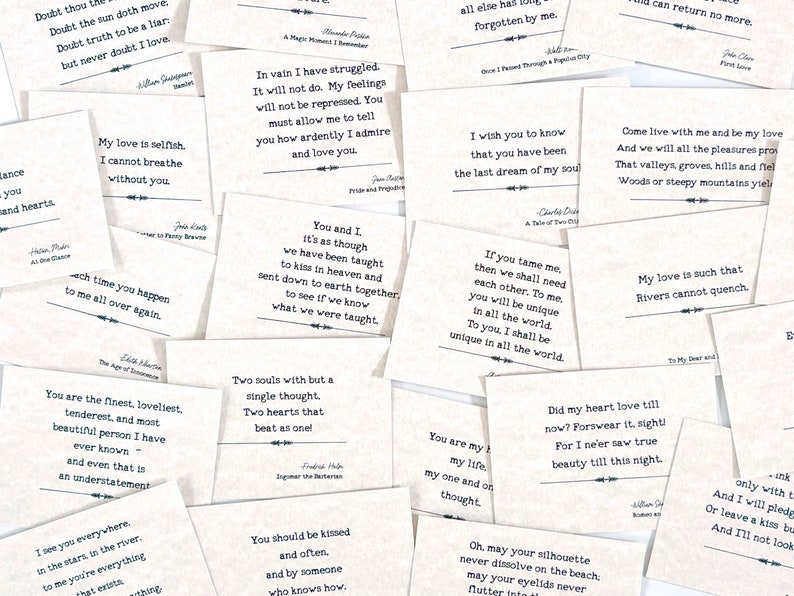 Doubt thou the
Doubt the sun doth move;
Doubt truth to be a liar;
but never doubt I love.
-William Shakespeare
Hamlet
-Alexander Pushkin
A Magic Moment I Remember
all else has long
forgotten by me.
-Walt
Once I Passed Through a Populus City
And can return no more.
John Clare
First Love
In vain I have struggled.
It will not do. My feelings
will not be repressed. You
must allow me to tell
you how ardently I admire
and love you.
Jane Austen
Pride and Prejudice
My love is selfish.
I cannot breathe
without you.
John Keats
to Fanny Brawne
I wish you to know
that you have been
the last dream of my soul
-Charles
A Tale of Two
Come live with me and be my love
And we will all the pleasures
That valleys, groves, hills and
Woods or steepy mountains
you
hearts.
At One Glance
each time you happen
to me all over again.
Edith Wharton
The Age of Innocence
You and I,
it's as though
we have been taught
to kiss in heaven and
sent down to earth together,
to see if we know
what we were taught.
If you tame me,
then we shall need
each other. To me,
you will be unique
in all the world.
To you, I shall be
unique in all the world.
My love is such that
Rivers cannot quench.
To My Dear and
You are the finest, loveliest,
tenderest, and most
beautiful person I have
ever known –
and even that is
an understatement
Two souls with but a
single thought,
Two hearts that
beat as one!
-Fredrich Halm
Ingomar the Barbarian
You are my
my life,
my one and
thought.
Did my heart love till
now? Forswear it, sight!
For I ne'er saw true
beauty till this night.
-William
Romeo
only with
And I will pledge
Or leave a kiss
And I'll not look
I see you everywhere,
in the stars, in the river,
to me you're everything
that exists;
everything.
You should be kissed
and often,
and by someone
who knows how.
Oh, may your silhouette
never dissolve on the beach;
may your eyelids never
flutter into